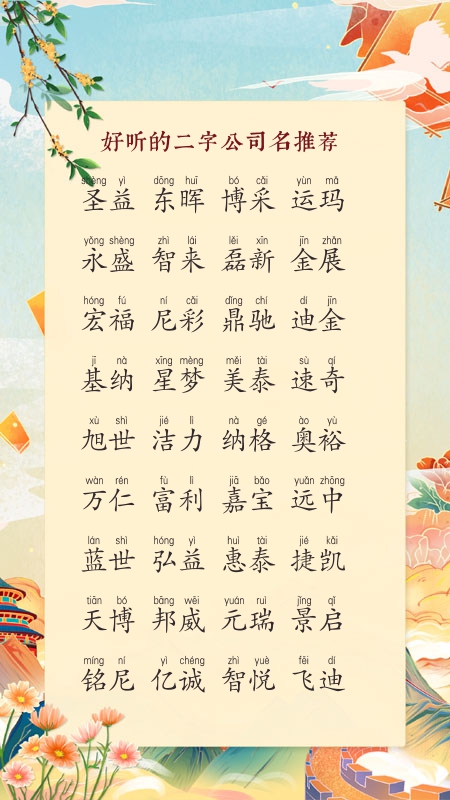 好听的二字公司名推荐
shèng yì dōng huī bó cǎi yùn mǎ
圣益 东晖 博采 运玛
yǒng shèng zhì lái lěi xīn jīn zhǎn
永盛 智来 磊新 金展
hóng fú ní cǎi dǐng chí dí jīn
宏福 尼彩 鼎驰 迪金
jī nà xīng mèng měi tài sù qí
基纳 星梦 美泰 速奇
xù shì jié lì nà gé ào yù
旭世 洁力 纳格 奥裕
wàn rén fù lì jiā bǎo yuǎn zhōng
万仁 富利 嘉宝 远中
lán shì hóng yì huì tài jié kǎi
蓝世 弘益 惠泰 捷凯
tiān bó bāng wēi yuán ruì jǐng qǐ
天博 邦威 元瑞 景启
míng ní yì chéng zhì yuè fēi dí
铭尼 亿诚 智悦 飞迪